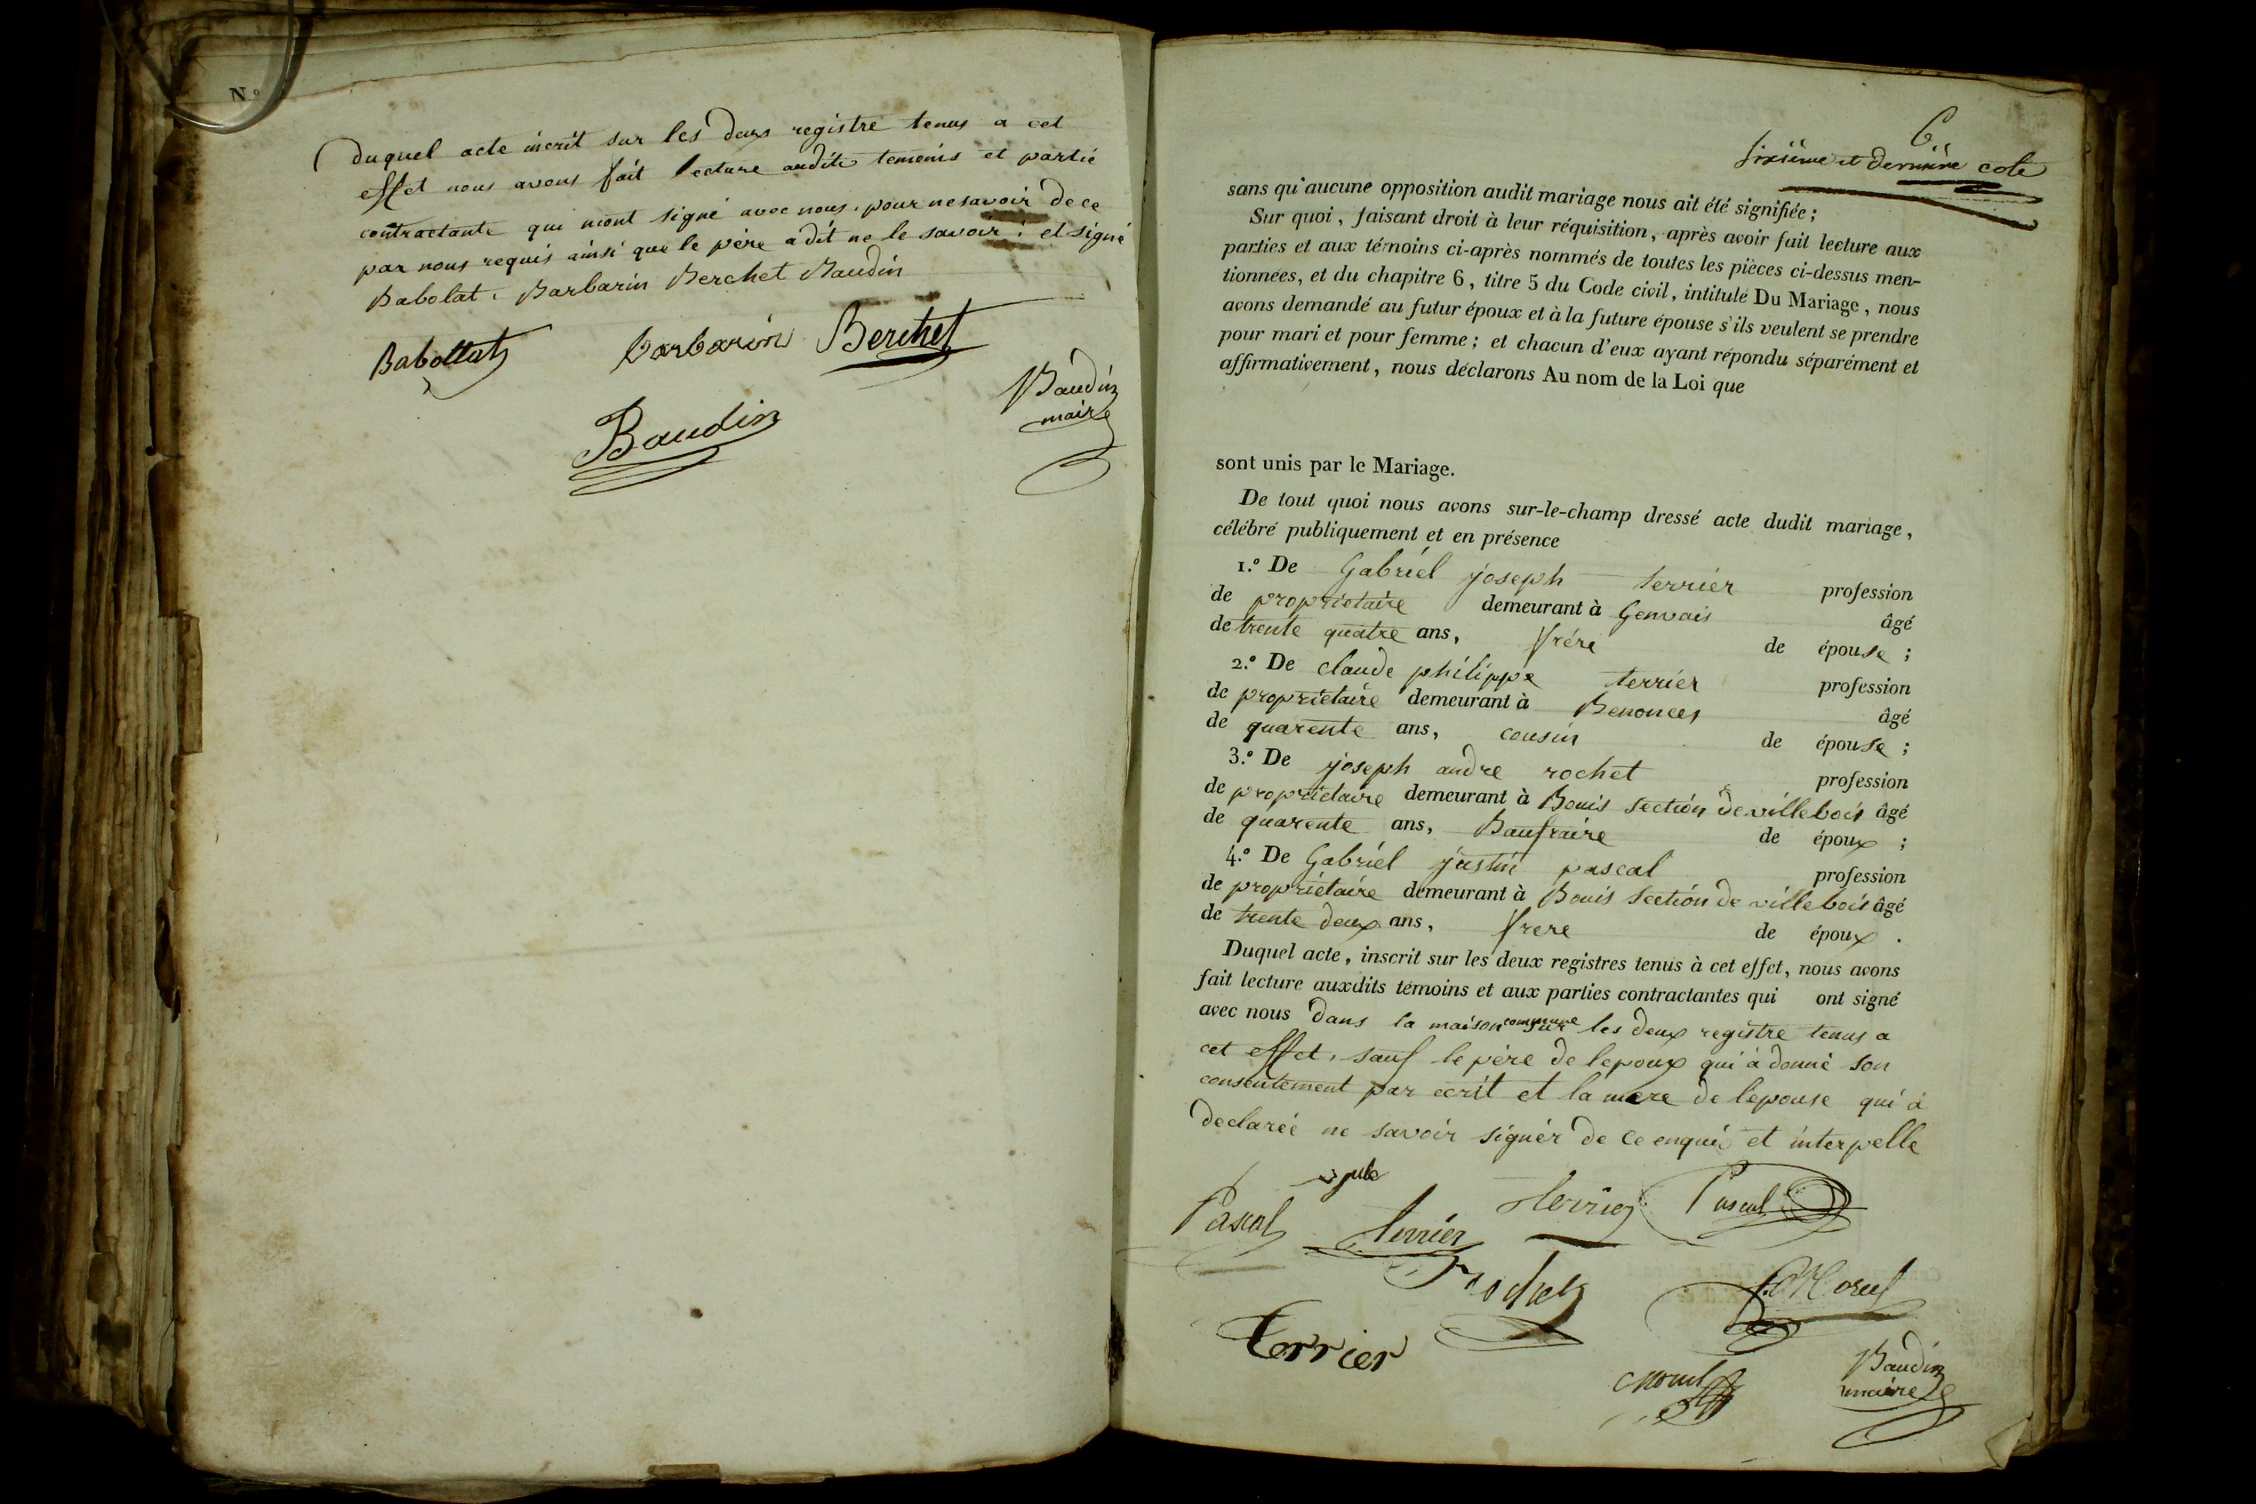 N.o
Duquel acte inscrit sur les deux registre tenus a cet
effet nous avons fait lecture audite temoins et partie
contractante qui n'iont signé avec nous, pour ne savoir de ce
par nous requis ainsi que le père a dit ne le savoir ; et signé
Babolat, Barbarin Berchet Baudin
Babollat Barbarin Berchet
Baudin
maire
Baudin
6
sixiéme et derniére cote
sans qu'aucune opposition audit mariage nous ait été signifiée ;
Sur quoi, faisant droit à leur réquisition, après avoir fait lecture aux
parties et aux témoins ci-après nommés de toutes les pièces ci-dessus men-
tionnées, et du chapitre 6, titre 5 du Code civil, intitulé Du Mariage, nous
avons demandé au futur époux et à la future épouse s'ils veulent se prendre
pour mari et pour femme ; et chacun d'eux ayant répondu séparément et
affirmativement, nous déclarons Au nom de la Loi que
sont unis par le Mariage.
De tout quoi nous avons sur-le-champ dressé acte dudit mariage,
célébré publiquement et en présence
1.o De Gabriel joseph terrier profession
de propriétaire demeurant à Genvais âgé
de trente quatre ans, frére de épouse ;
2.o De claude philippe terrier profession
de propriétaire demeurant à Benonces âgé
de quarente ans, cousin de épouse ;
3.o De joseph andre rochet profession
de propriétaire demeurant à Bouis section de villebois âgé
de quarente ans, Baufraire de époux ;
4.o De Gabriel justin pascal profession
de propriétaire demeurant à Bouis section de villebois âgé
de trente deux ans, frere de époux .
Duquel acte, inscrit sur les deux registres tenus à cet effet, nous avons
fait lecture auxdits témoins et aux parties contractantes qui ont signé
avec nous dans la maison commune sur les deux registre tenus a
cet effet, sauf le père de lepoux qui à donné son
consentement par ecrit et la mere de l'epouse qui à
declarée ne savoir signér de ce enquis et interpelle
Pascal terrier terrier Pascal
rochet
terrier
Baudin
maire